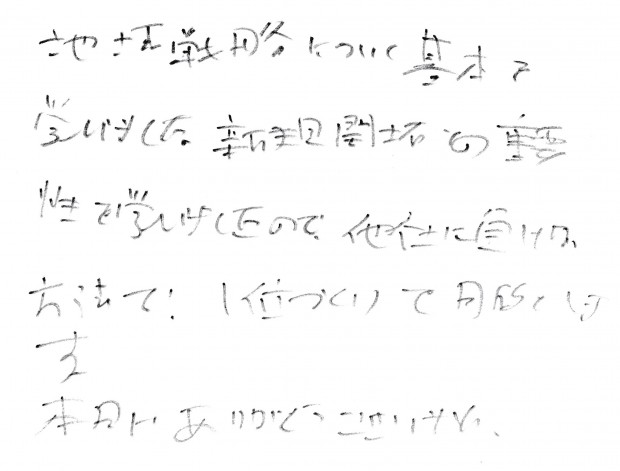 地域戦略について基本を
学びました。新規開拓の重要
性を学びましたので、他社に負けない
方法で!1位づくりを目指しま
す
本日はありがとうございました。